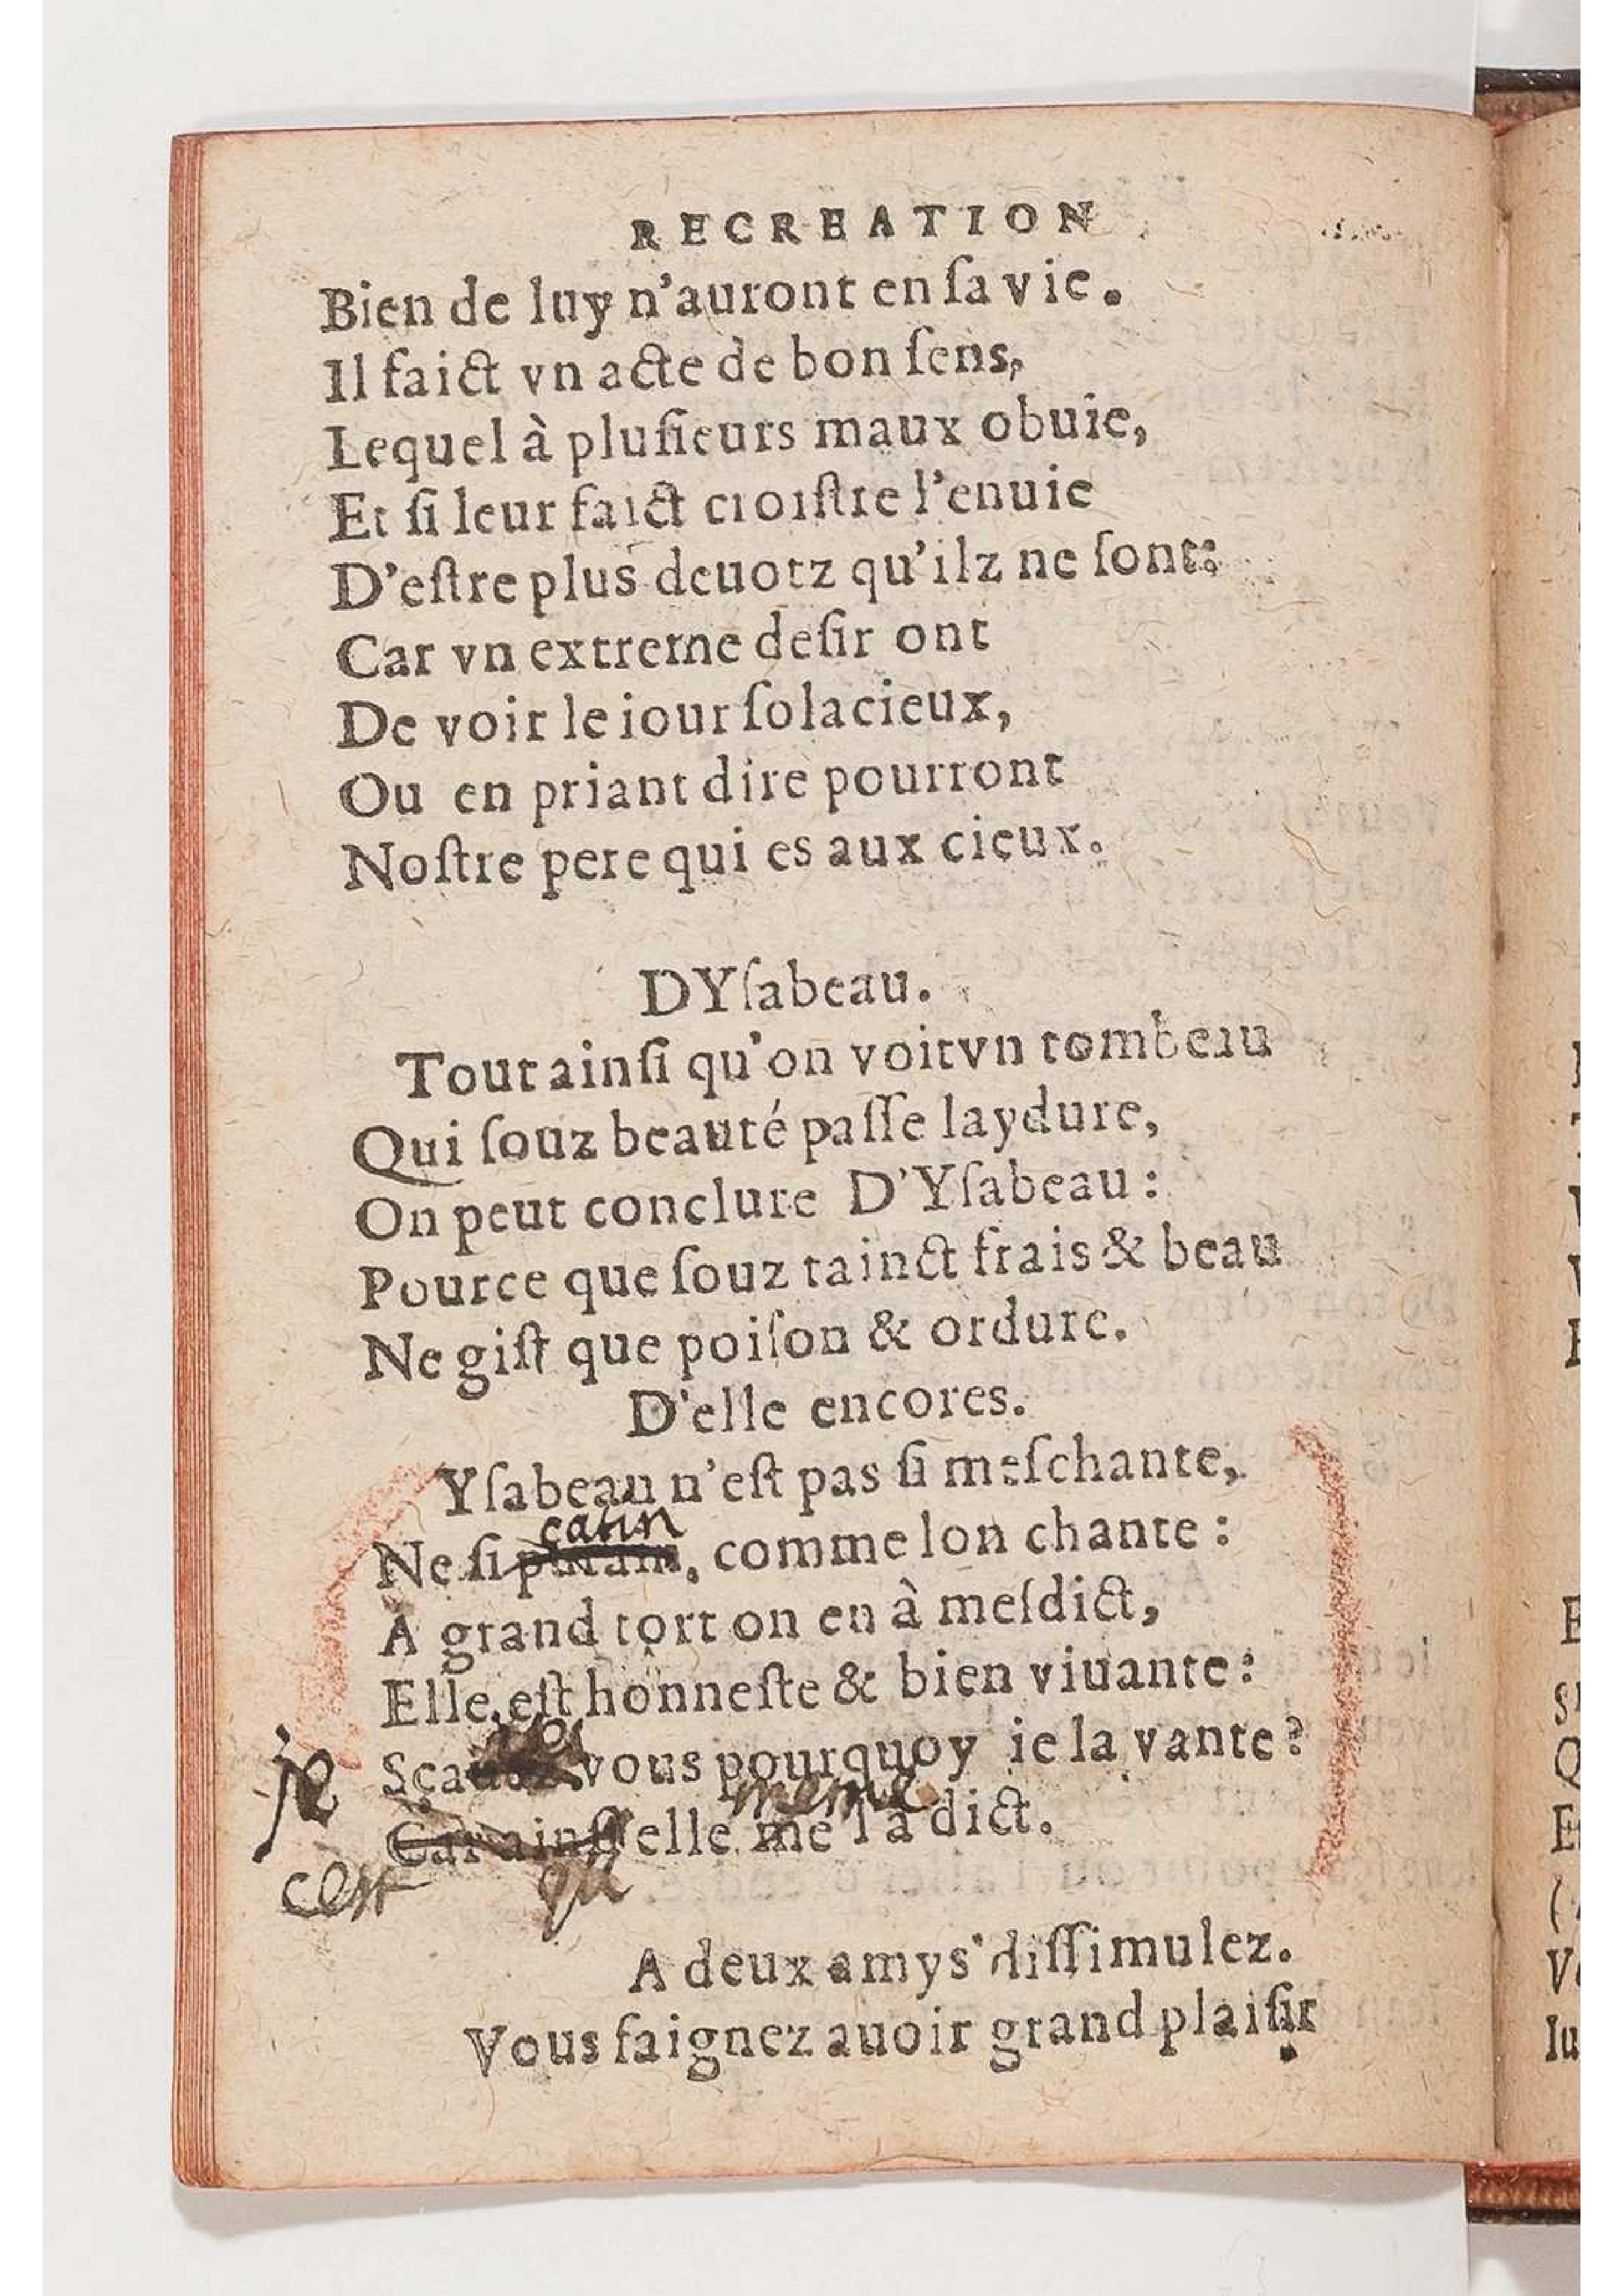 RECREATION
Bien de luy n'auront en ſa vie.
Il faict vn acte de bon ſens,
Lequel à pluſieurs maux obuie,
Et ſi leur faict croiſtre l'enuie
D'eſtre plus deuotz qu'ilz ne ſont:
Car vn extreme deſir ont
De voir le iour ſolacieux,
Ou en priant dire pourront
Noſtre pere qui es aux cieux.
DYſabeau.
Tout ainſi qu'on voit vn tombeau
Qui ſouz beauté paſſe laydure,
On peut conclure D'Yſabeau:
Pource que ſouz tainct frais & beau
Ne giſt que poiſon & ordure.
D'elle encores.
Yſabeau n'eſt pas ſi meſchante,
catin
Ne ſi putain, comme lon chante:
A grand tort on en à meſdict,
Elle eſt honneſte & bien viuante:
je Sça vous pourquoy ie la vante?
meme
Car ainſi elle me l'a dict.
cest qu
A deux amys diſſimulez.
Vous faignez auoir grand plaiſir